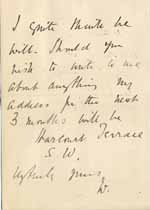 I quite think he
will. Should you
wish to write to me
about anything my
address for the next
3 months will be
Harcourt Terrace
S.W.
yours